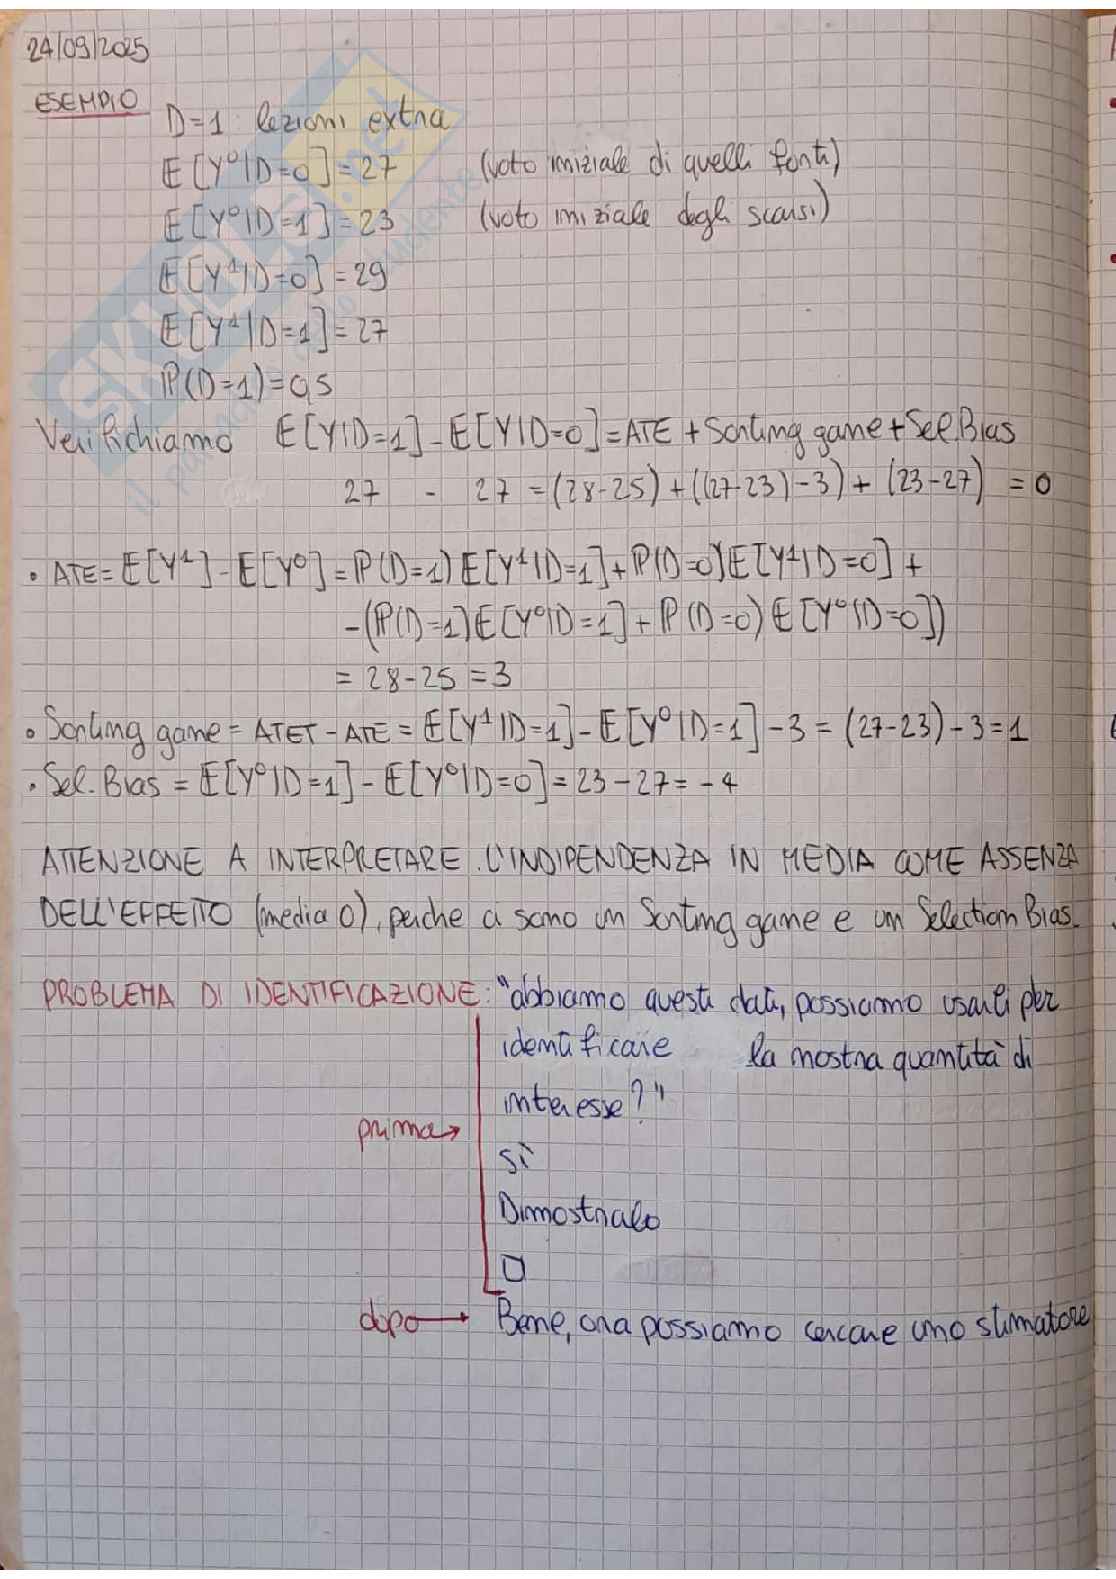 24/09/2025
ESEMPIO D=1 lezioni extra
E[Y⁰|D=0]=27 (voto iniziale di quelli forti)
E[Y⁰|D=1]=23 (voto iniziale degli scarsi)
E[Y¹|D=0]=29
E[Y¹|D=1]=27
P(D=1)=0,5
Verifichiamo E[Y|D=1]-E[Y|D=0]=ATE+Sorting game+Sel.Bias
27 - 27 =(28-25)+((27-23)-3)+(23-27) =0
• ATE=E[Y¹]-E[Y⁰]=P(D=1)E[Y¹|D=1]+P(D=0)E[Y¹|D=0]+
-(P(D=1)E[Y⁰|D=1]+P(D=0)E[Y⁰|D=0])
= 28-25 =3
• Sorting game= ATET-ATE = E[Y¹|D=1]-E[Y⁰|D=1]-3 = (27-23)-3=1
• Sel. Bias = E[Y⁰|D=1]-E[Y⁰|D=0]=23-27=-4
ATTENZIONE A INTERPRETARE L'INDIPENDENZA IN MEDIA COME ASSENZA
DELL'EFFETTO (media 0), perche ci sono un Sorting game e un Selection Bias.
PROBLEMA DI IDENTIFICAZIONE: "abbiamo questi dati, possiamo usarli per
identificare la nostra quantità di
interesse?"
prima→
sì
Dimostralo
□
dopo→ Bene, ora possiamo cercare uno stimatore